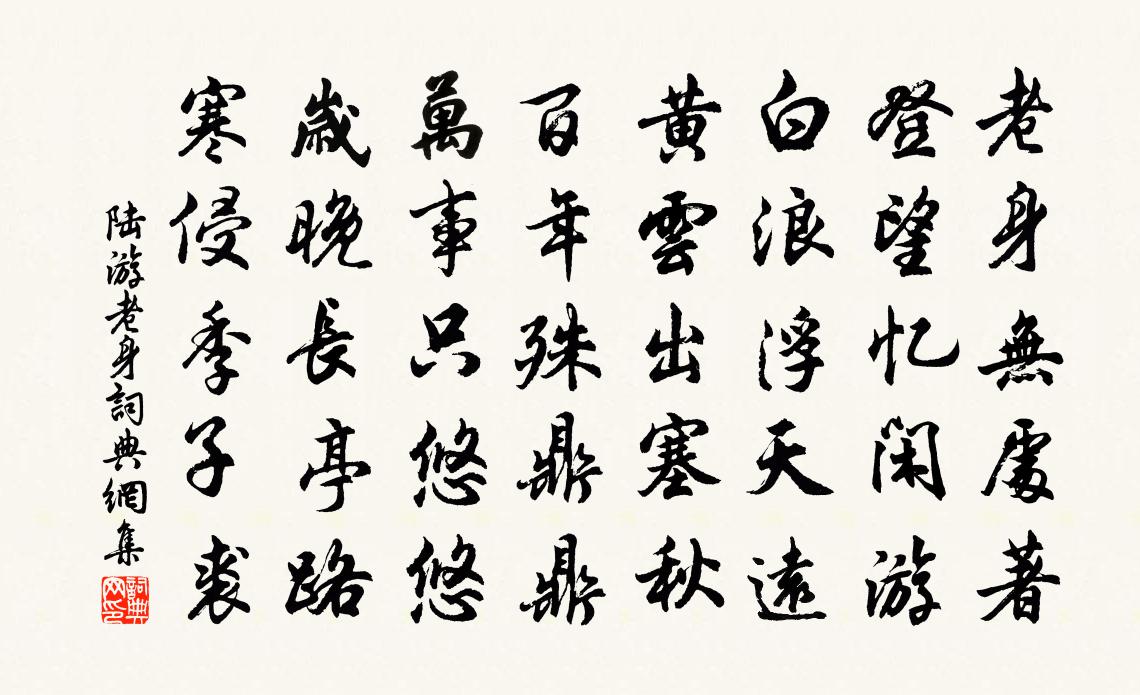 老身無處著
登望忆闲游
白浪浮天遠
黃雲出塞秋
百年殊鼎鼎
萬事只悠悠
歲晚長亭路
寒侵季子裘
陆游老身詞典網集
詞典网印